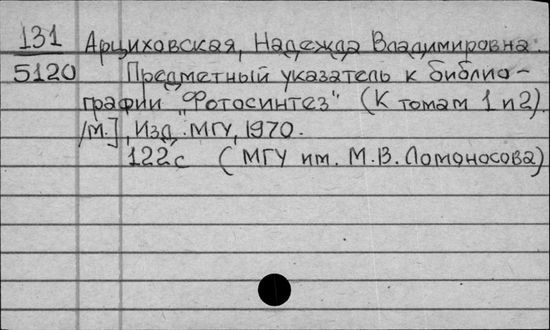 131 Арциховская, Надежда Владимировна.
5120 Предметный указатель к библио-
графии "Фотосинтез" (К томам 1 и 2).
/М.], Изд. МГУ, 1970.
122 с (МГУ им. М.В. Ломоносова)